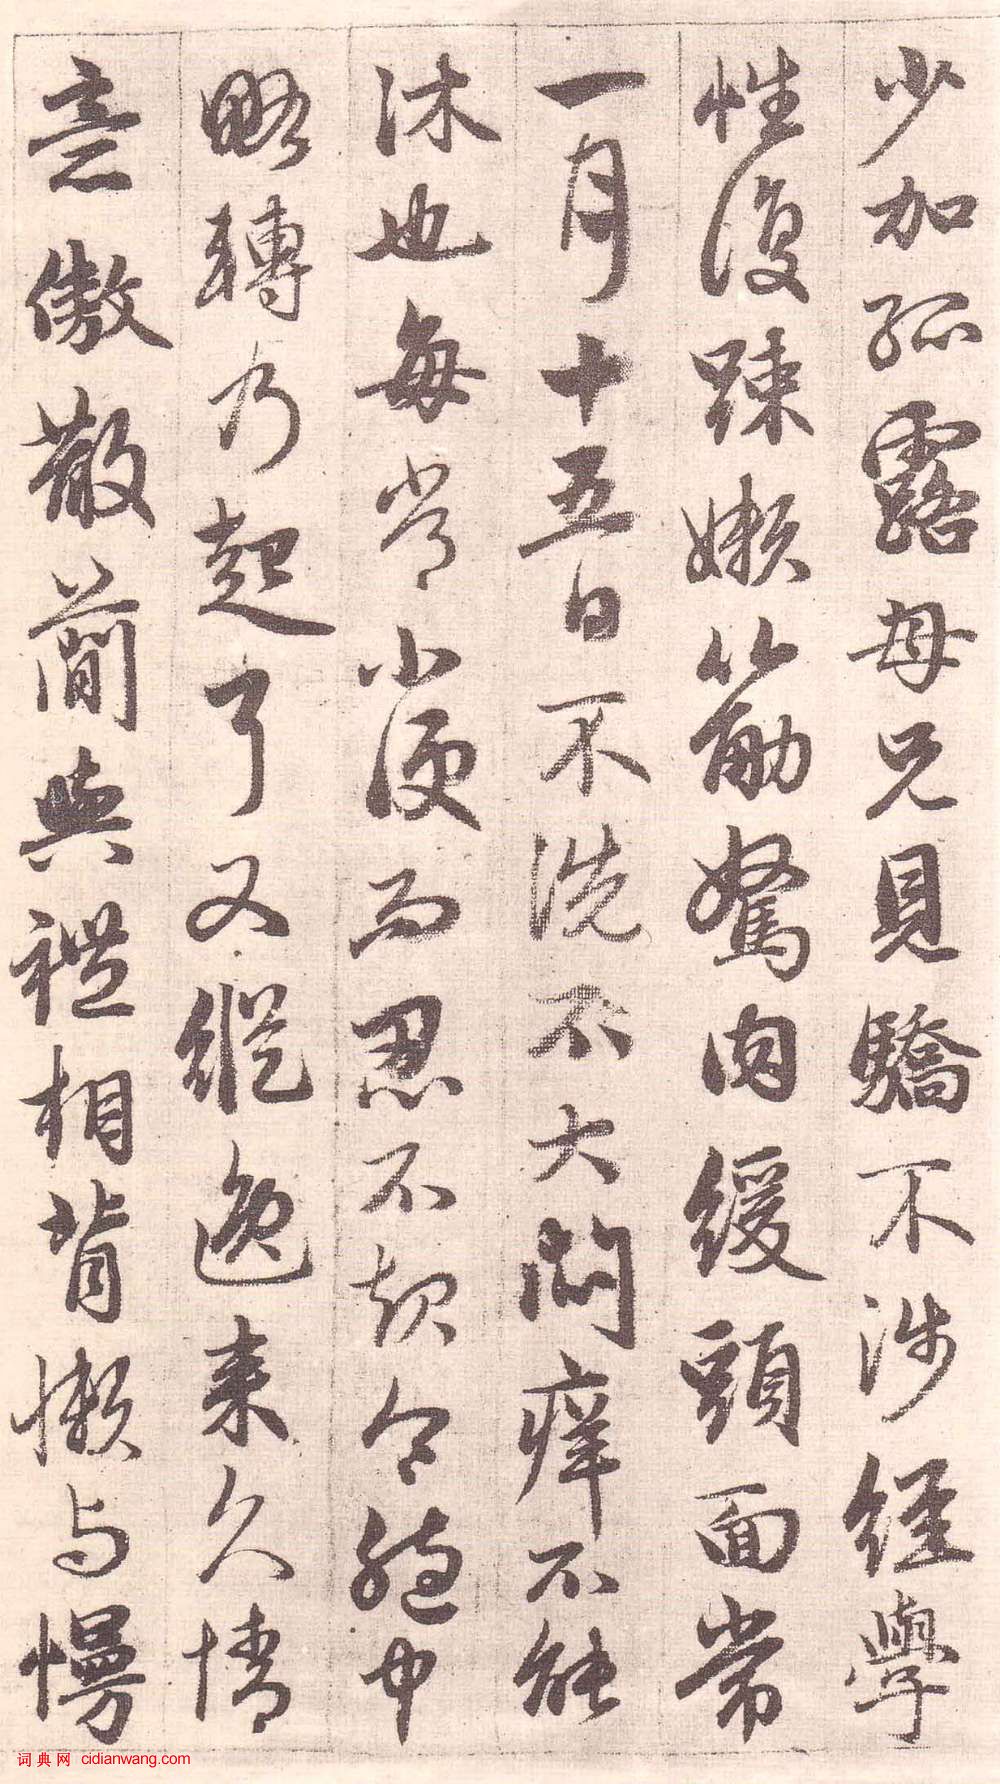 少加孤露母兄見驕不涉經學
性復踈嬾筋駑肉緩頭面常
一月十五日不洗不大悶癢不能
沐也每常小便而忍不起令胞中
略轉乃起耳又縱逸来久情
意傲散簡與禮相背懶与慢
词典网 cidianwang.com